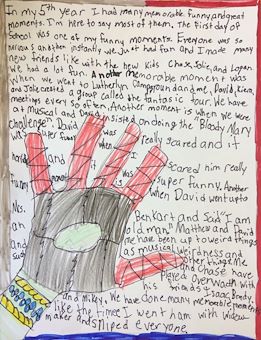 In my 5th year I had many memorable, funny and great
moments. I'm here to say most of them. The first day of
School was one of my funny moments. Everyone was so
nervous then instantly we just had fun and I made many
new friends like with the new kids Chase, Jolie, and Logan.
We had a lot fun. Another memorable moment was
when we went to Lutherlyn Campground and me, David,
and Jolie created a group called the fantastic tour. We have
meetings every so often. Another moment is when we were
at musical and David insisted on doing the "Bloody Mary
challenge" David was when I really scared and it
was super funny
hand and it scared him really
it was super funny. Another
was when David went up to
Ms. Benkart and said "I am
an old man" Matthew and David
and me have been up to weird things
such as musical weirdness and
other things. Me
and Chase have
played Overwatch with
his friends Isaac, Brody
and Mikey. We have done many memorable moments
like the time I went ham with widow
maker and sniped everyone.